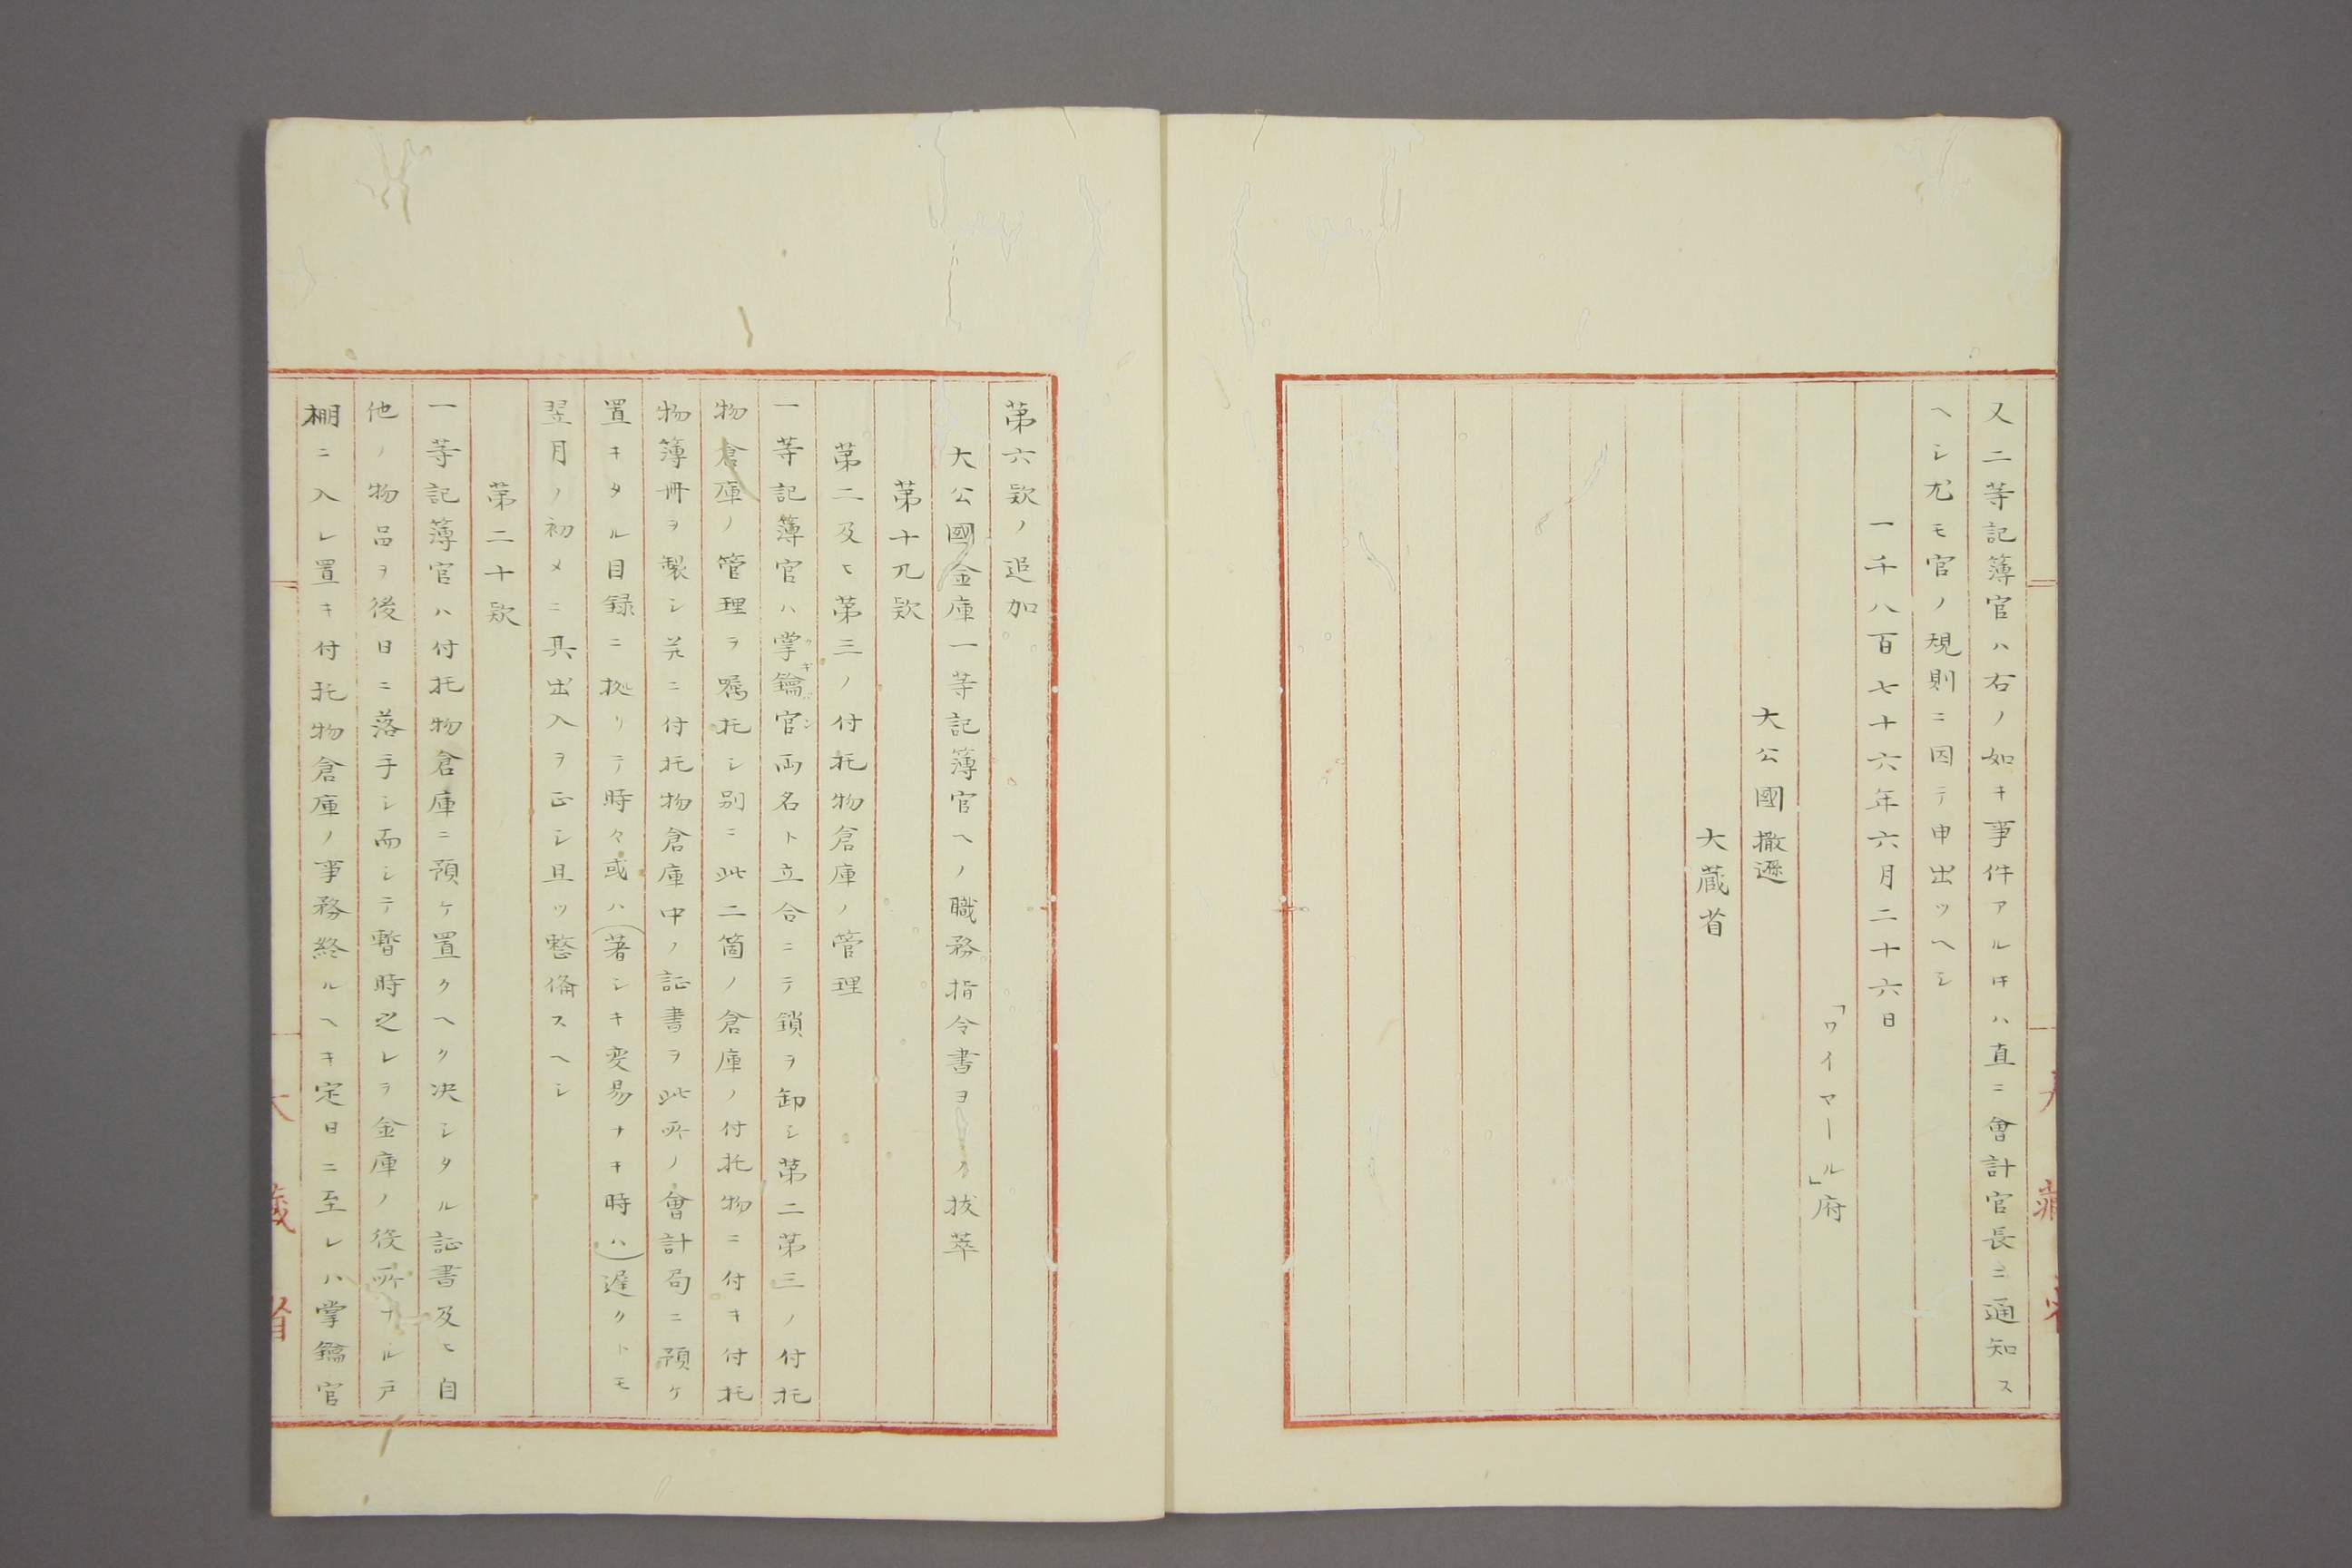 又二等記簿官ハ右ノ如キ事件アル𪜈ハ直ニ會計官長ニ通知ス
ヘシ尤モ官ノ規則ニ因テ申出ツヘシ
一千八百七十六年六月二十六日
「ワイマール」府
大公國撒遜
大蔵省
第六欵ノ追加
大公國金庫一等記簿官ヘノ職務指令書ヨリノ抜萃
第十九欵
第二及ヒ第三ノ付托物倉庫ノ管理
一等記簿官ハ掌鑰官両名ト立合ニテ鎖ヲ卸シ第二第三ノ付托
物倉庫ノ管理ヲ嘱托シ別ニ此二箇ノ倉庫ノ付托物ニ付キ付托
物簿冊ヲ製シ並ニ付托物倉庫中ノ証書ヲ此所ノ會計局ニ預ケ
置キタル目録ニ拠リテ時々或ハ(著シキ変易ナキ時ハ)遅クトモ
翌月ノ初メニ具出入ヲ正シ且ツ整備スヘシ
第二十欵
一等記簿官ハ付托物倉庫ニ預ケ置クヘク决シタル証書及ヒ自
他ノ物品ヲ後日ニ落手シ而シテ暫時之レヲ金庫ノ役所ナル戸
棚ニ入レ置キ付托物倉庫ノ事務終ルヘキ定日ニ至レハ掌鑰官
大蔵省